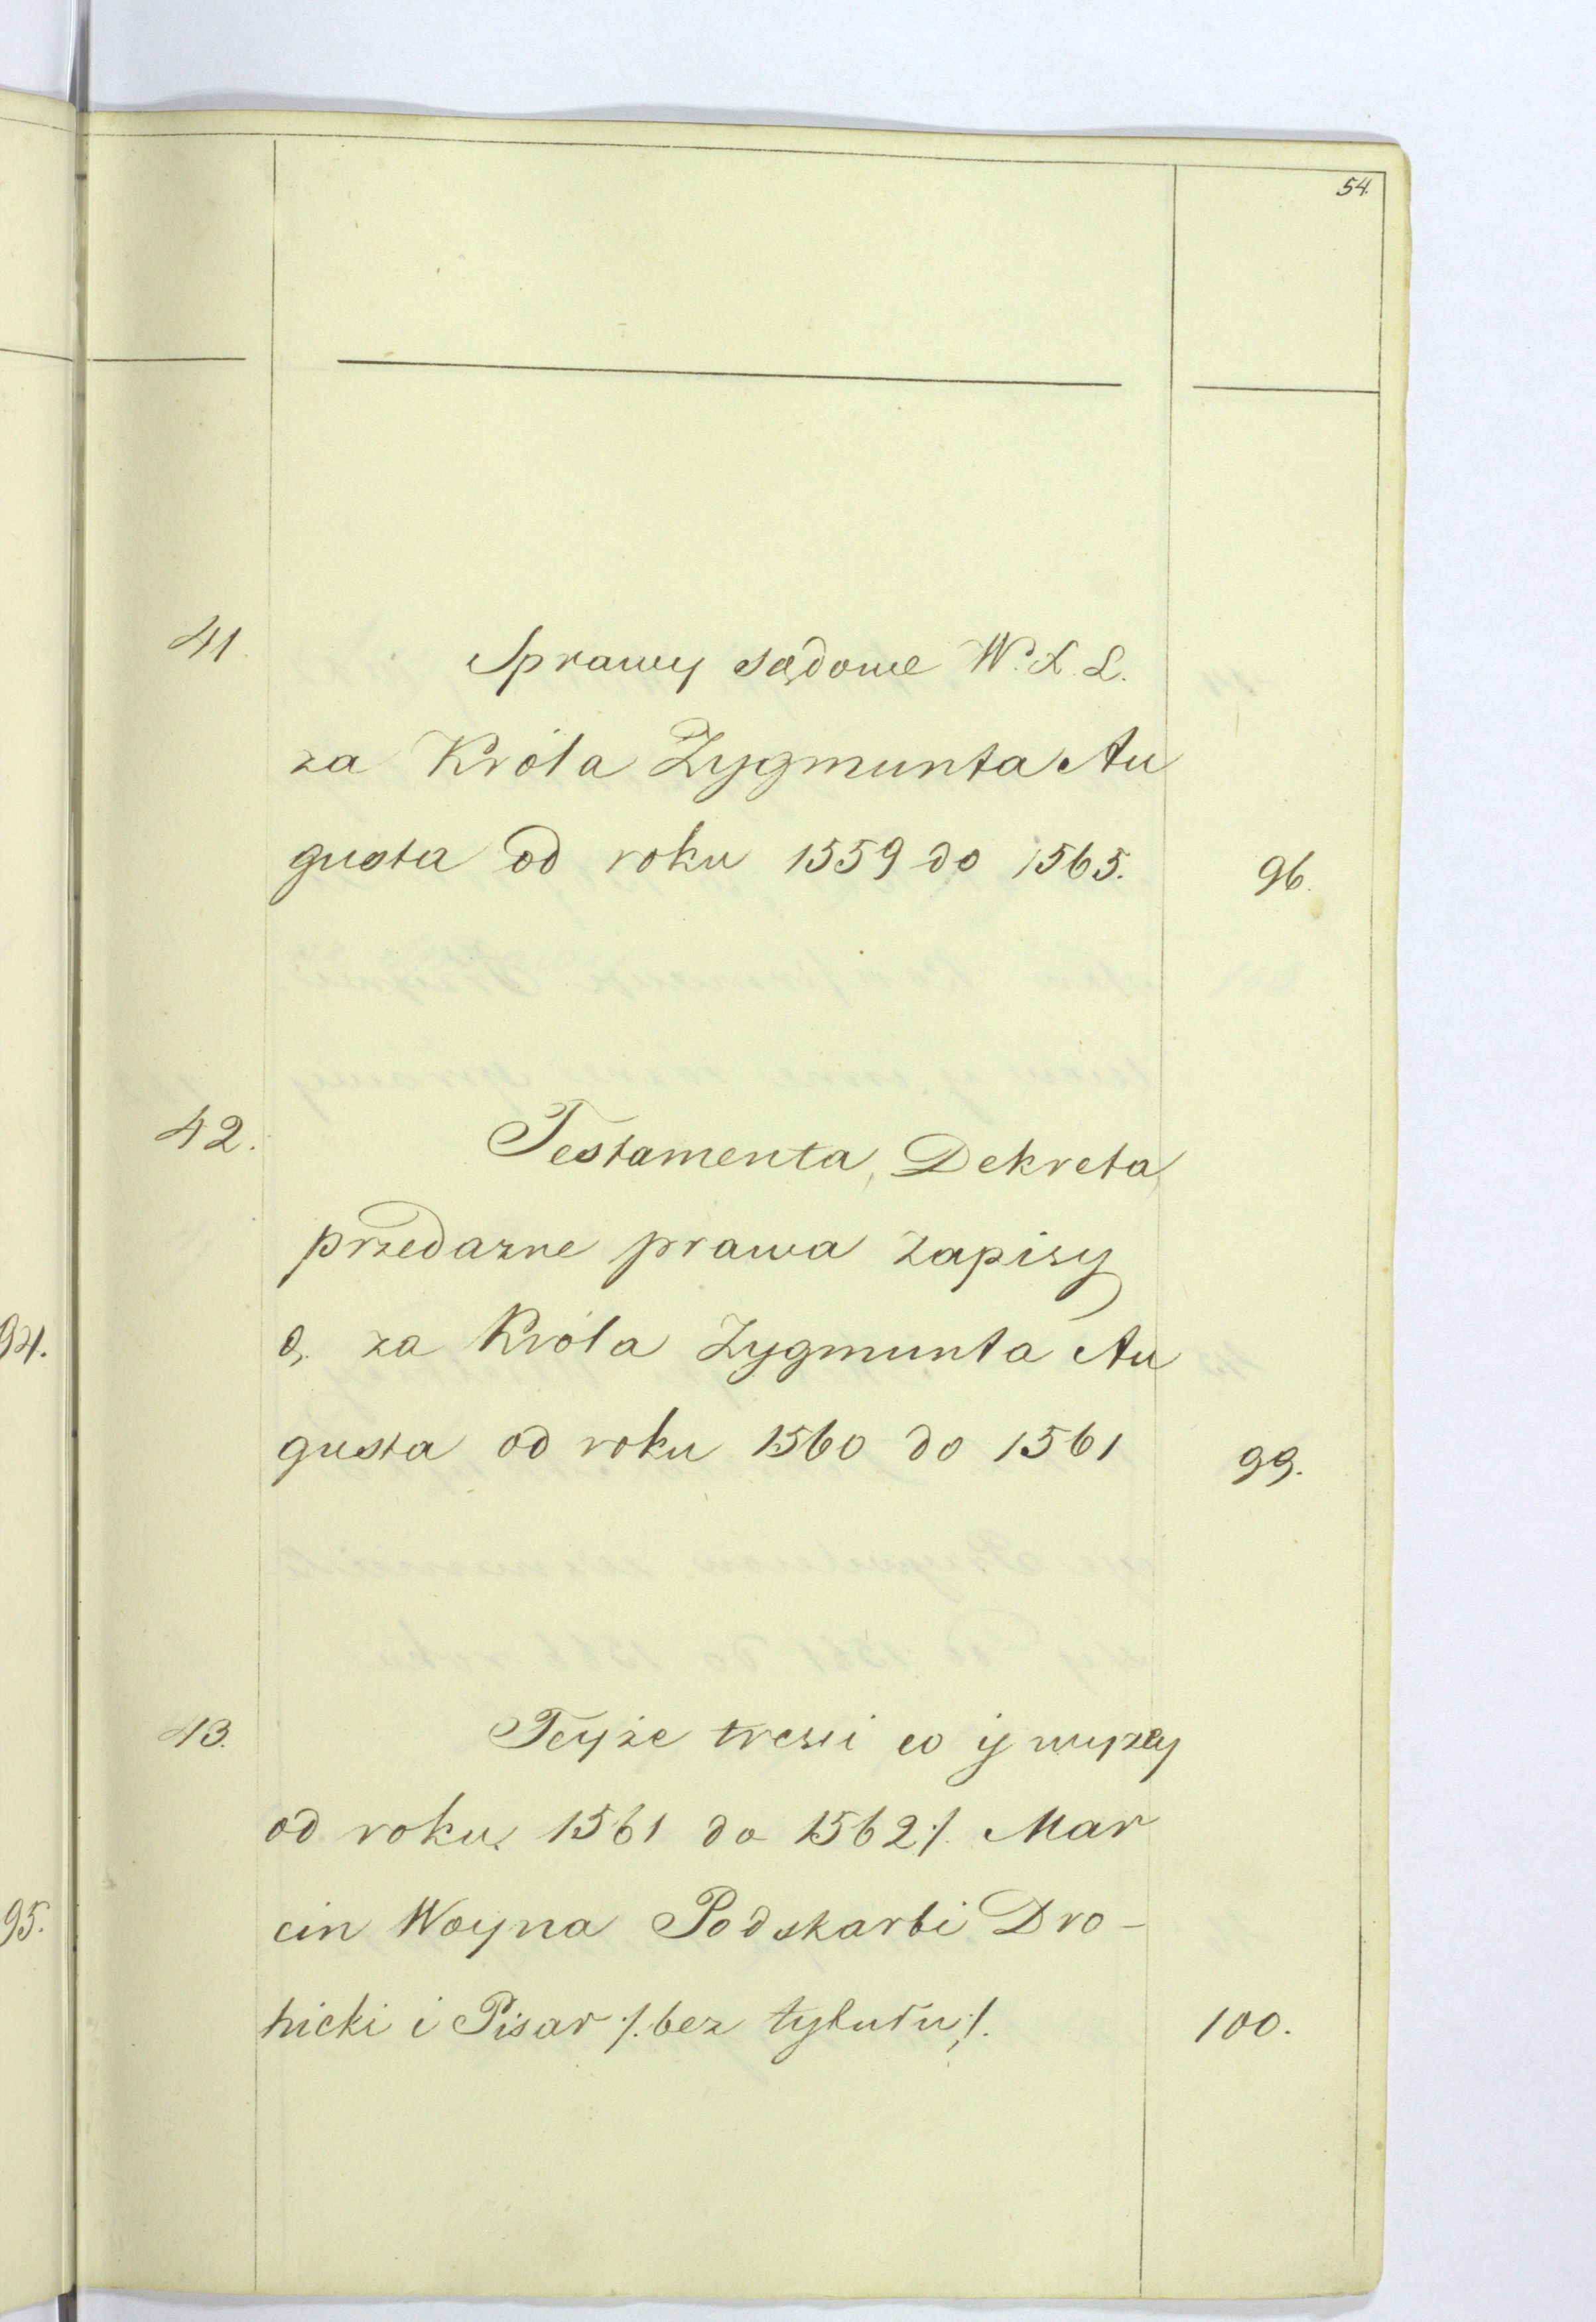 54.
41. Sprawy sądowe W. X. L.
za Króla Zygmunta Au
gusta od roku 1559 do 1565. 96.
42. Testamenta, Dekreta,
przedazne prawa zapisy
za Króla Zygmunta Au
gusta od roku 1560 do 1561 99.
94.
43. Teyże tresci co y wyzey
od roku 1561 do 1562 ./. Mar
cin Woyna Podskarbi Dro-
hicki i Pisar ./. bez tytułu ./. 100.
95.